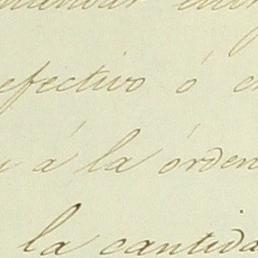 efectivo ó
á la órden
la cantida